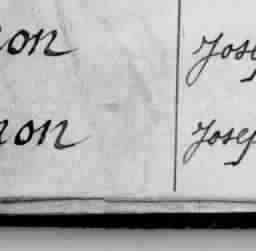 on Jose
non Josep